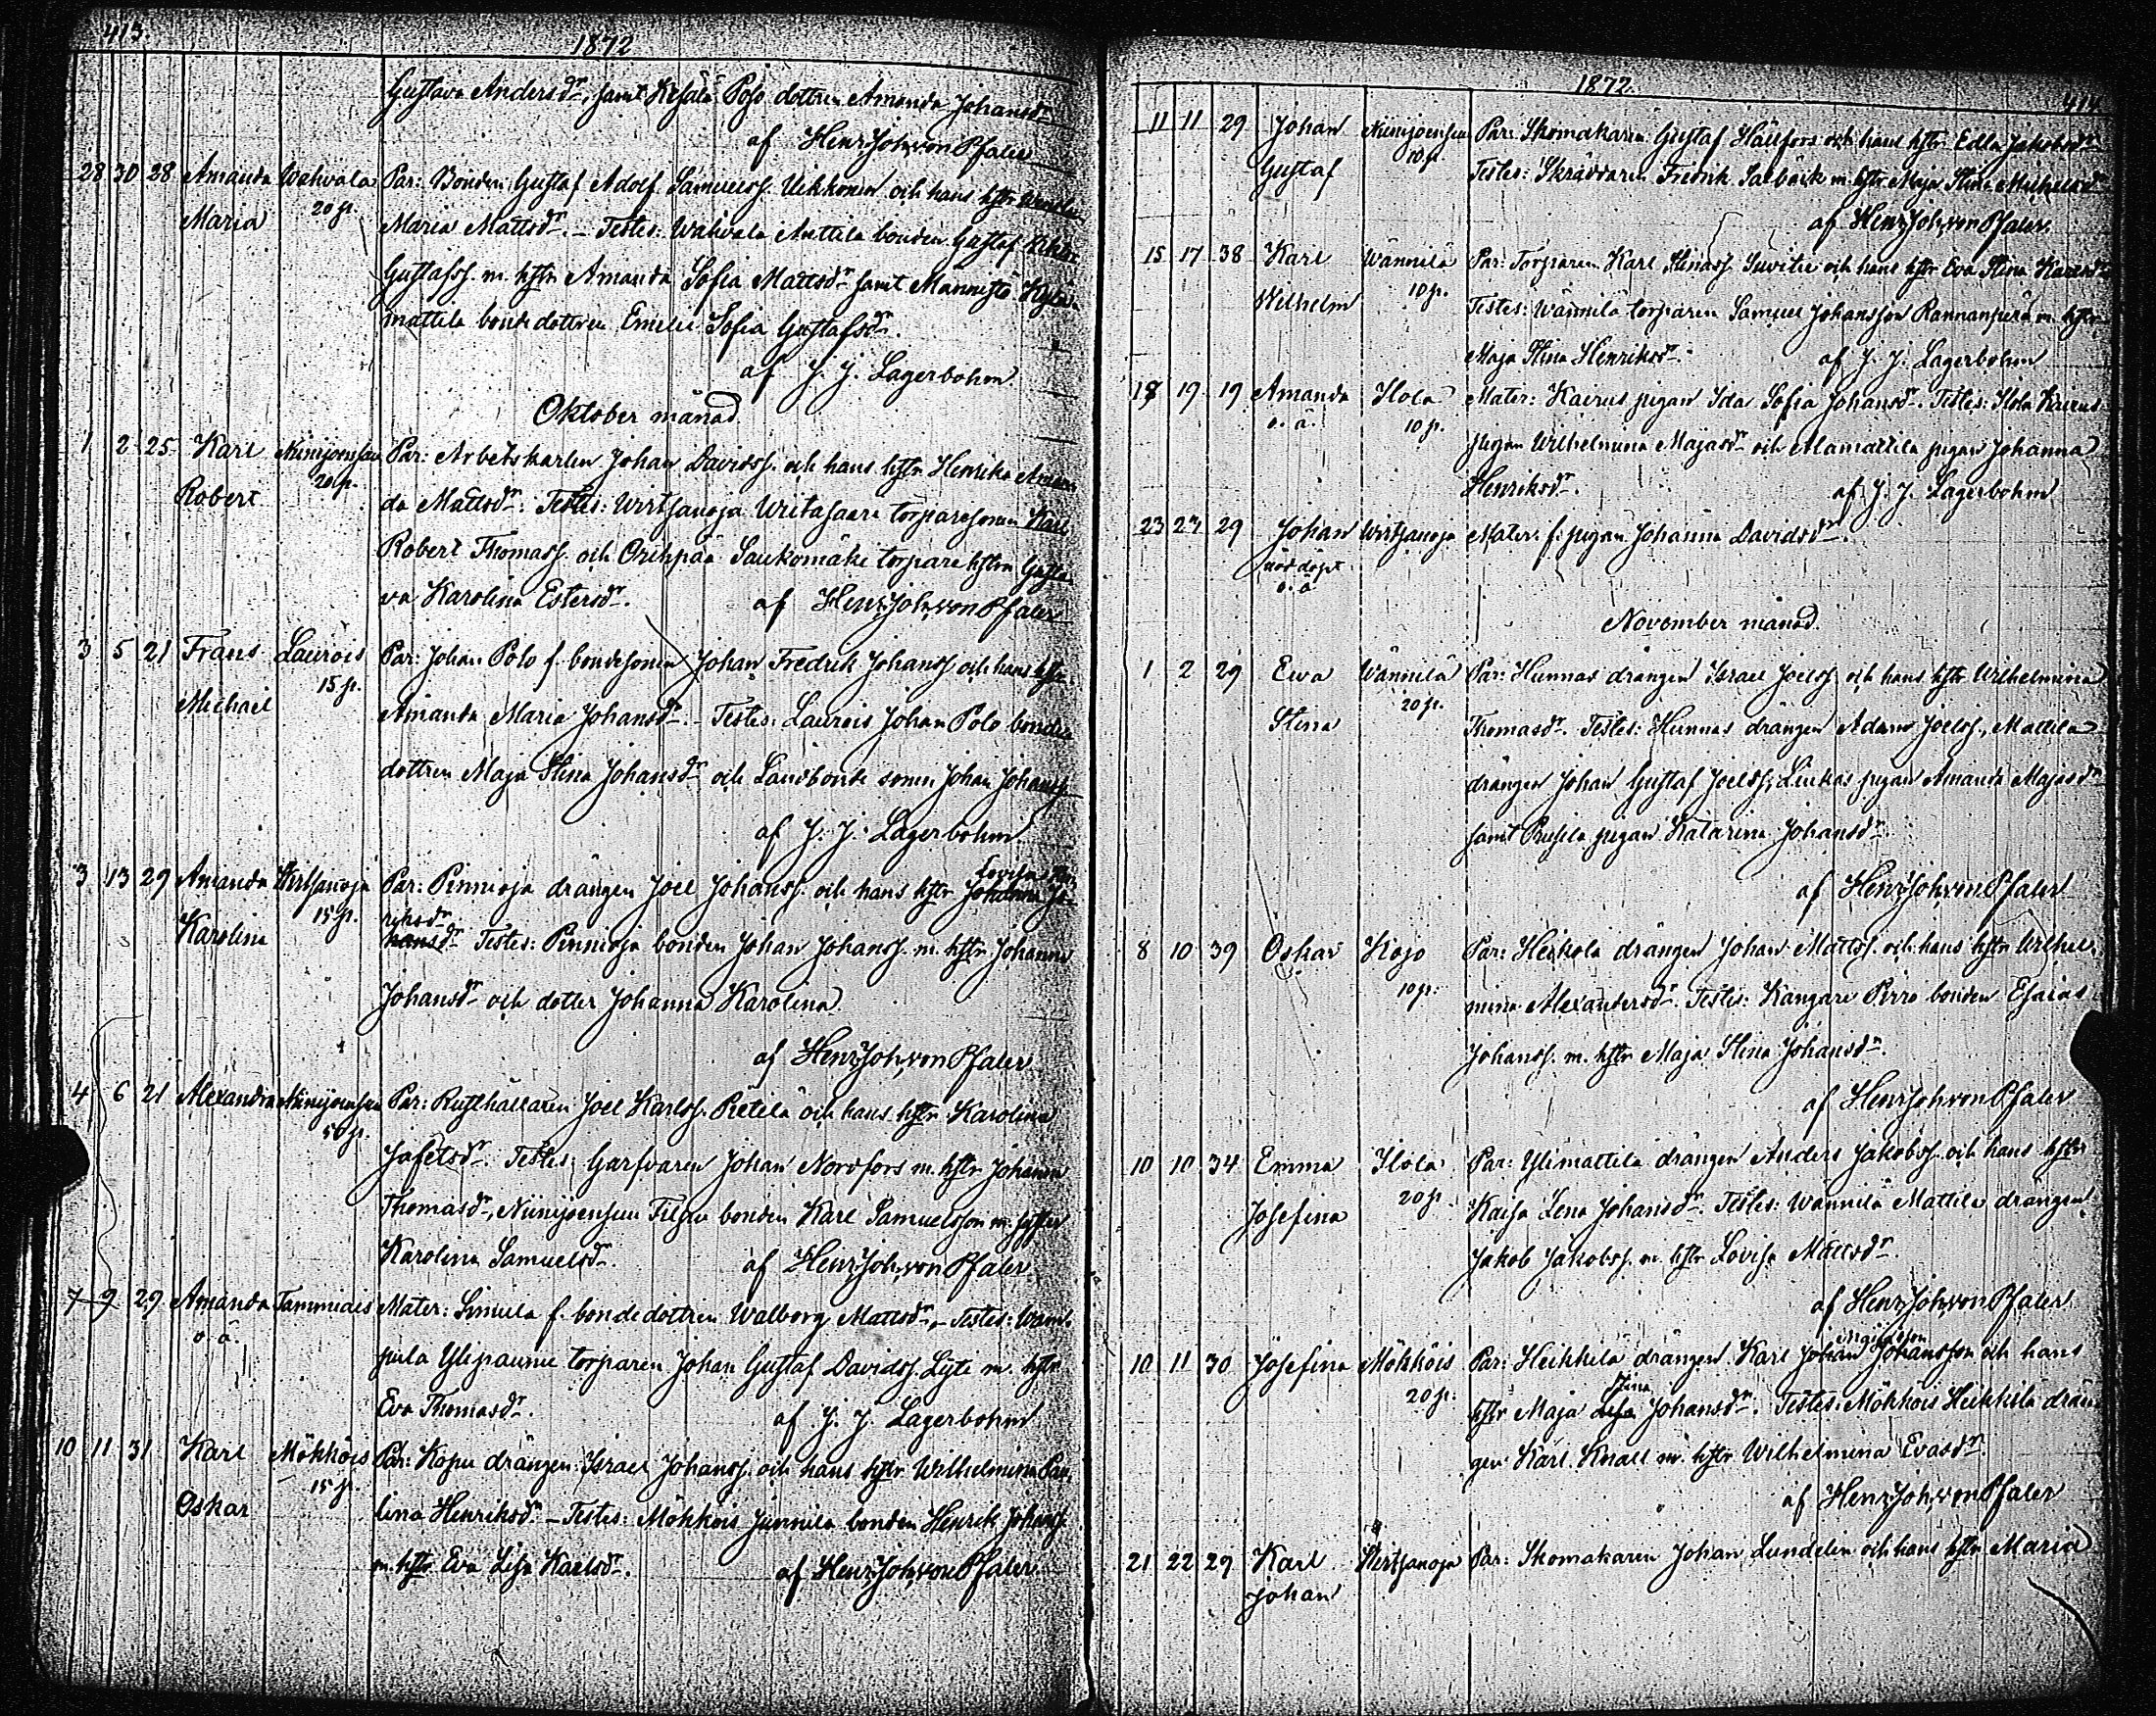 413.
1872
Gustava Andersdr, samt Kesälä Pojo dottren Amanda Johansdr
af Henr. Joh. von Pfaler
28 30 28 Amanda Wahvala Par: Bonden Gustaf Adolf Samuelss. Uckkonen och hans hstr
Maria 20 p. Maria Mattsdr. – Testes: Wahvala Anttila bonden Gustaf
Gustafss. m. hstr Amanda Sofia Mattsdr samt Männistö
mattila bondedottren Emelie Sofia Gustafsdr.
af J. J. Lagerbohm
Oktober månad
1 2 25 Karl Niinijoensuu Par: Arbetskarlen Johan Davidss. och hans hstr Henrika Aman
Robert 20 p. da Mattsdr. Testes: Wirtsanoja Uvitasaari torparesonen Karl
Robert Thomass. och Orihpää Saukomäki torparehstrn Gusta
va Karolina Estersdr. af Henr. Joh. von Pfaler
3 5 21 Frans Laurois Par: Johan Polo f. bondesonen Johan Fredrik Johanss. och hans hstr
Michael 15 p. Amanda Maria Johansdr. – Testes: Laurois Johan Polo bonde
dottren Maja Stina Johansdr och Landbonde sonen Johan Johanss.
af J. J. Lagerbohm
Lovisa Hen
3 13 29 Amanda Wirtsanoja Par: Pinnioja drängen Joel Johanss. och hans hstr Johanna Jo
riksdr
Karolina 15 p. hansdr Testes: Pinnioja bonden Johan Johanss. m. hstr Johanna
Johansdr och dotter Johanna Karolina
af Henr. Joh. von Pfaler
4 6 21 Alexandra Niinijoensuu Par: Rusthållaren Joel Karlss. Pietilä och hans hstr Karolina
50 p. Jafetsdr. Testes: Garfvaren Johan Nordfors m. hstr Johanna
Thomasdr, Niinijoensuu Filpu bonden Karl Samuelsson m. syster
Karolina Samuelsdr. af Henr. Joh. von Pfaler
7 9 29 Amanda Tammiais Mater: Simula f. bondedottren Walborg Mattsdr, – Testes: Wam-
o. ä. pula Ylipaunu torparen Johan Gustaf Davidss. Lyti m. hstr
Eva Thomasdr. af J. J. Lagerbohm
10 11 31 Karl Mökköis Par: Kopu drängen Israel Johanss. och hans hstr Wilhelmina Pau
Oskar 15 p. lina Henriksdr – Testes: Mökköis Junnila bonden Henrik Johanss.
m. hstr Eva Lisa Karlsdr. af Henr. Joh. von Pfaler
1872. 414
11 11 29 Johan Niinijoensuu Par: Skomakaren Gustaf Hällfors och hans hstr Edla Jakobsdr
Gustaf 10 p. Testes: Skräddaren Fredrik Salbäck m. hstr Maja Stina Michelsdr
af Henr. Joh. von Pfaler
15 17 38 Karl Wännilä Par: Torparen Karl Stinass. Suvitie och hans hstr Eva Stina Karlsdr
Wilhelm 10 p. Testes: Wännilä torparen Samuel Johansson Rannanperä m. hstr
Maja Stina Henriksdr. af J. J. Lagerbohm
17 19 19 Amanda Ilola Mater: Kairus pigan Ida Sofia Johansdr. Testes: Ilola Kairus
o. ä. 10 p. pigan Wilhelmina Majasdr och Alamattila pigan Johanna
Henriksdr. af J. J. Lagerbohm
23 27 29 Johan Wirtsanoja Mater: f. pigan Johanna Davidsdr.
nöddöpt
o. ä
November månad.
1 2 29 Ewa Wännilä Par: Hunnas drängen Israel Joelss. och hans hstr Wilhelmina
Stina 20 p. Thomasdr. Testes: Hunnas drängen Adam Joelss., Mattila
drängen Johan Gustaf Joelss., Liukas pigan Amanda Majasdr
samt Prusila pigan Katarina Johansdr.
af Henr. Joh. von Pfaler
8 10 39 Oskar Kojo Par: Heikola drängen Johan Mattss. och hans hstr Wilhel
10 p. mina Alexandersdr. Testes: Kangare Pirro bonden Esaias
Johanss. m. hstr Maja Stina Johansdr.
af Henr. Joh. von Pfaler
10 10 34 Emma Ilola Par: Ylimattila drängen Anders Jakobss. och hans hstr
Josefina 20 p. Kaisa Lena Johansdr. Testes: Wännilä Mattila drängen
Jakob Jakobss. m. hstr Lovisa Mattsdr.
af Henr. Joh. von Pfaler
10 11 30 Josefina Mökköis Par: Heikkilä drängen Karl Johan Johansson och hans
Stina
20 p. hstr Maja Lisa Johansdr. Testes: Mökköis Heikkilä drän
gen Karl Knall m. hstr Wilhelmina Evasdr.
af Henr. Joh. von Pfaler
21 22 29 Karl Wirtsanoja Par: Skomakaren Johan Lundelin och hans hstr Maria
Johan